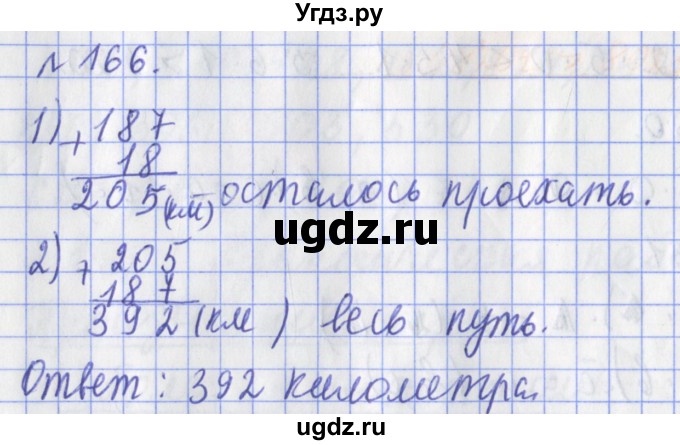 Угдз.ру
№ 166.
1) + 187
18
205 (км) осталось проехать.
ugdz.ru
2) + 205
187
392 (км) весь путь.
Ответ: 392 километра.
ugdz.ru